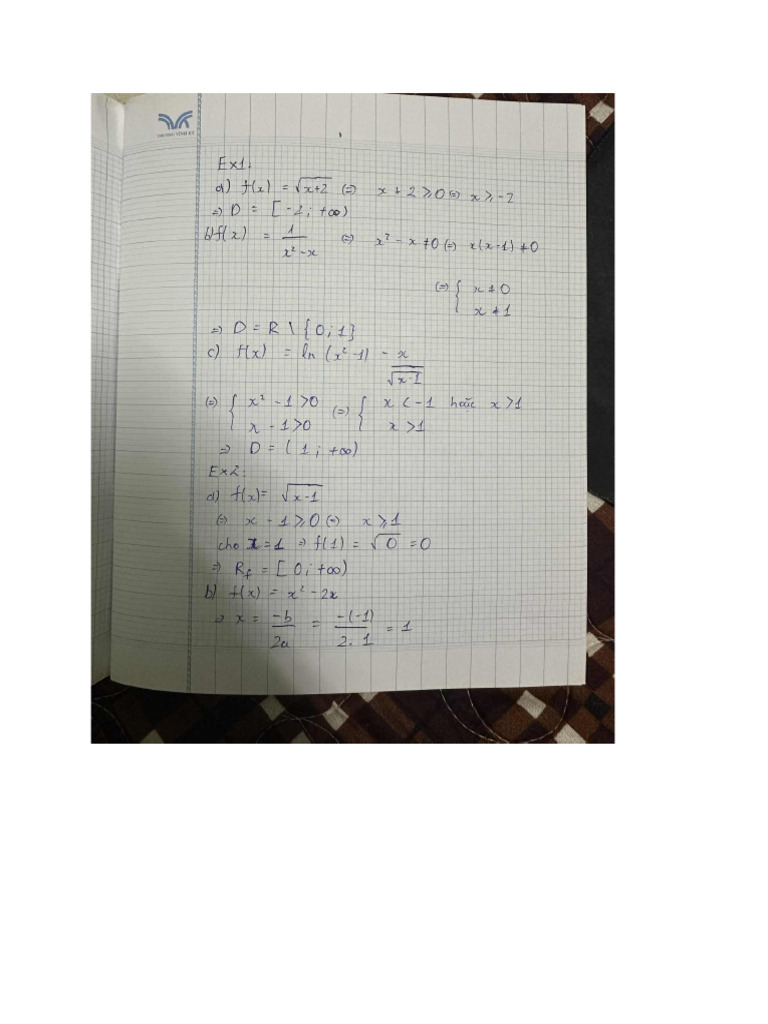 TRƯƠNG VĨNH KÝ
Ex1:
a) f(x) = √(x+2) (=) x + 2 ≥ 0 (=) x ≥ -2
=) D = [-2; +∞)
b) f(x) = 1/(x² - x) (=) x² - x ≠ 0 (=) x(x-1) ≠ 0
(=) { x ≠ 0
x ≠ 1
=) D = R \ {0; 1}
c) f(x) = ln (x² - 1) - x/√(x-1)
(=) { x² - 1 > 0 (=) { x < -1 hoặc x > 1
x - 1 > 0 x > 1
=) D = (1; +∞)
Ex2:
a) f(x) = √(x-1)
(=) x - 1 ≥ 0 (=) x ≥ 1
cho x = 1 =) f(1) = √0 = 0
=) Rf = [0; +∞)
b) f(x) = x² - 2x
=) x = -b/2a = -(-1)/2.1 = 1